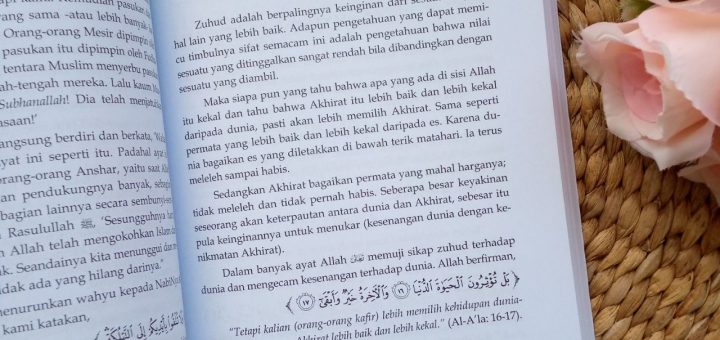 sama -atau lebih banyak-
Orang-orang Mesir dipimpin
pasukan itu dipimpin oleh
tentara Muslim menyerbu
tengah mereka. Lalu kaum
Subhanallah! Dia telah
langsung berdiri dan berkata,
ayat ini seperti itu. Padahal ayat
orang-orang Anshar, yaitu saat
dan pendukungnya banyak,
bagian lainnya secara
Rasulullah ﷺ 'Sesungguhnya
Allah telah mengokohkan
Seandainya kita menunggui dan
tidak ada yang hilang darinya."
menurunkan wahyu kepada
kami katakan,
Zuhud adalah berpalingnya keinginan dari
hal lain yang lebih baik. Adapun pengetahuan yang dapat memi-
cu timbulnya sifat semacam ini adalah pengetahuan bahwa nilai
sesuatu yang ditinggalkan sangat rendah bila dibandingkan dengan
sesuatu yang diambil.
Maka siapa pun yang tahu bahwa apa yang ada di sisi Allah
itu kekal dan tahu bahwa Akhirat itu lebih baik dan lebih kekal
daripada dunia, pasti akan lebih memilih Akhirat. Sama seperti
permata yang lebih baik dan lebih kekal daripada es. Karena du-
nia bagaikan es yang diletakkan di bawah terik matahari. Ia terus
meleleh sampai habis.
Sedangkan Akhirat bagaikan permata yang mahal harganya;
tidak meleleh dan tidak pernah habis. Seberapa besar keyakinan
seseorang akan keterpautan antara dunia dan Akhirat, sebesar itu
pula keinginannya untuk menukar (kesenangan dunia dengan ke-
nikmatan Akhirat).
Dalam banyak ayat Allah memuji sikap zuhud terhadap
dunia dan mengecam kesenangan terhadap dunia. Allah berfirman,
﴿ بَلْ تُؤْثِرُونَ الْحَيَوٰةَ الدُّنْيَا ١٦ وَالْآخِرَةُ خَيْرٌ وَأَبْقَىٰ ١٧ ﴾
"Tetapi kalian (orang-orang kafir) lebih memilih kehidupan dunia-
Akhirat lebih baik dan lebih kekal." (Al-A'la: 16-17).